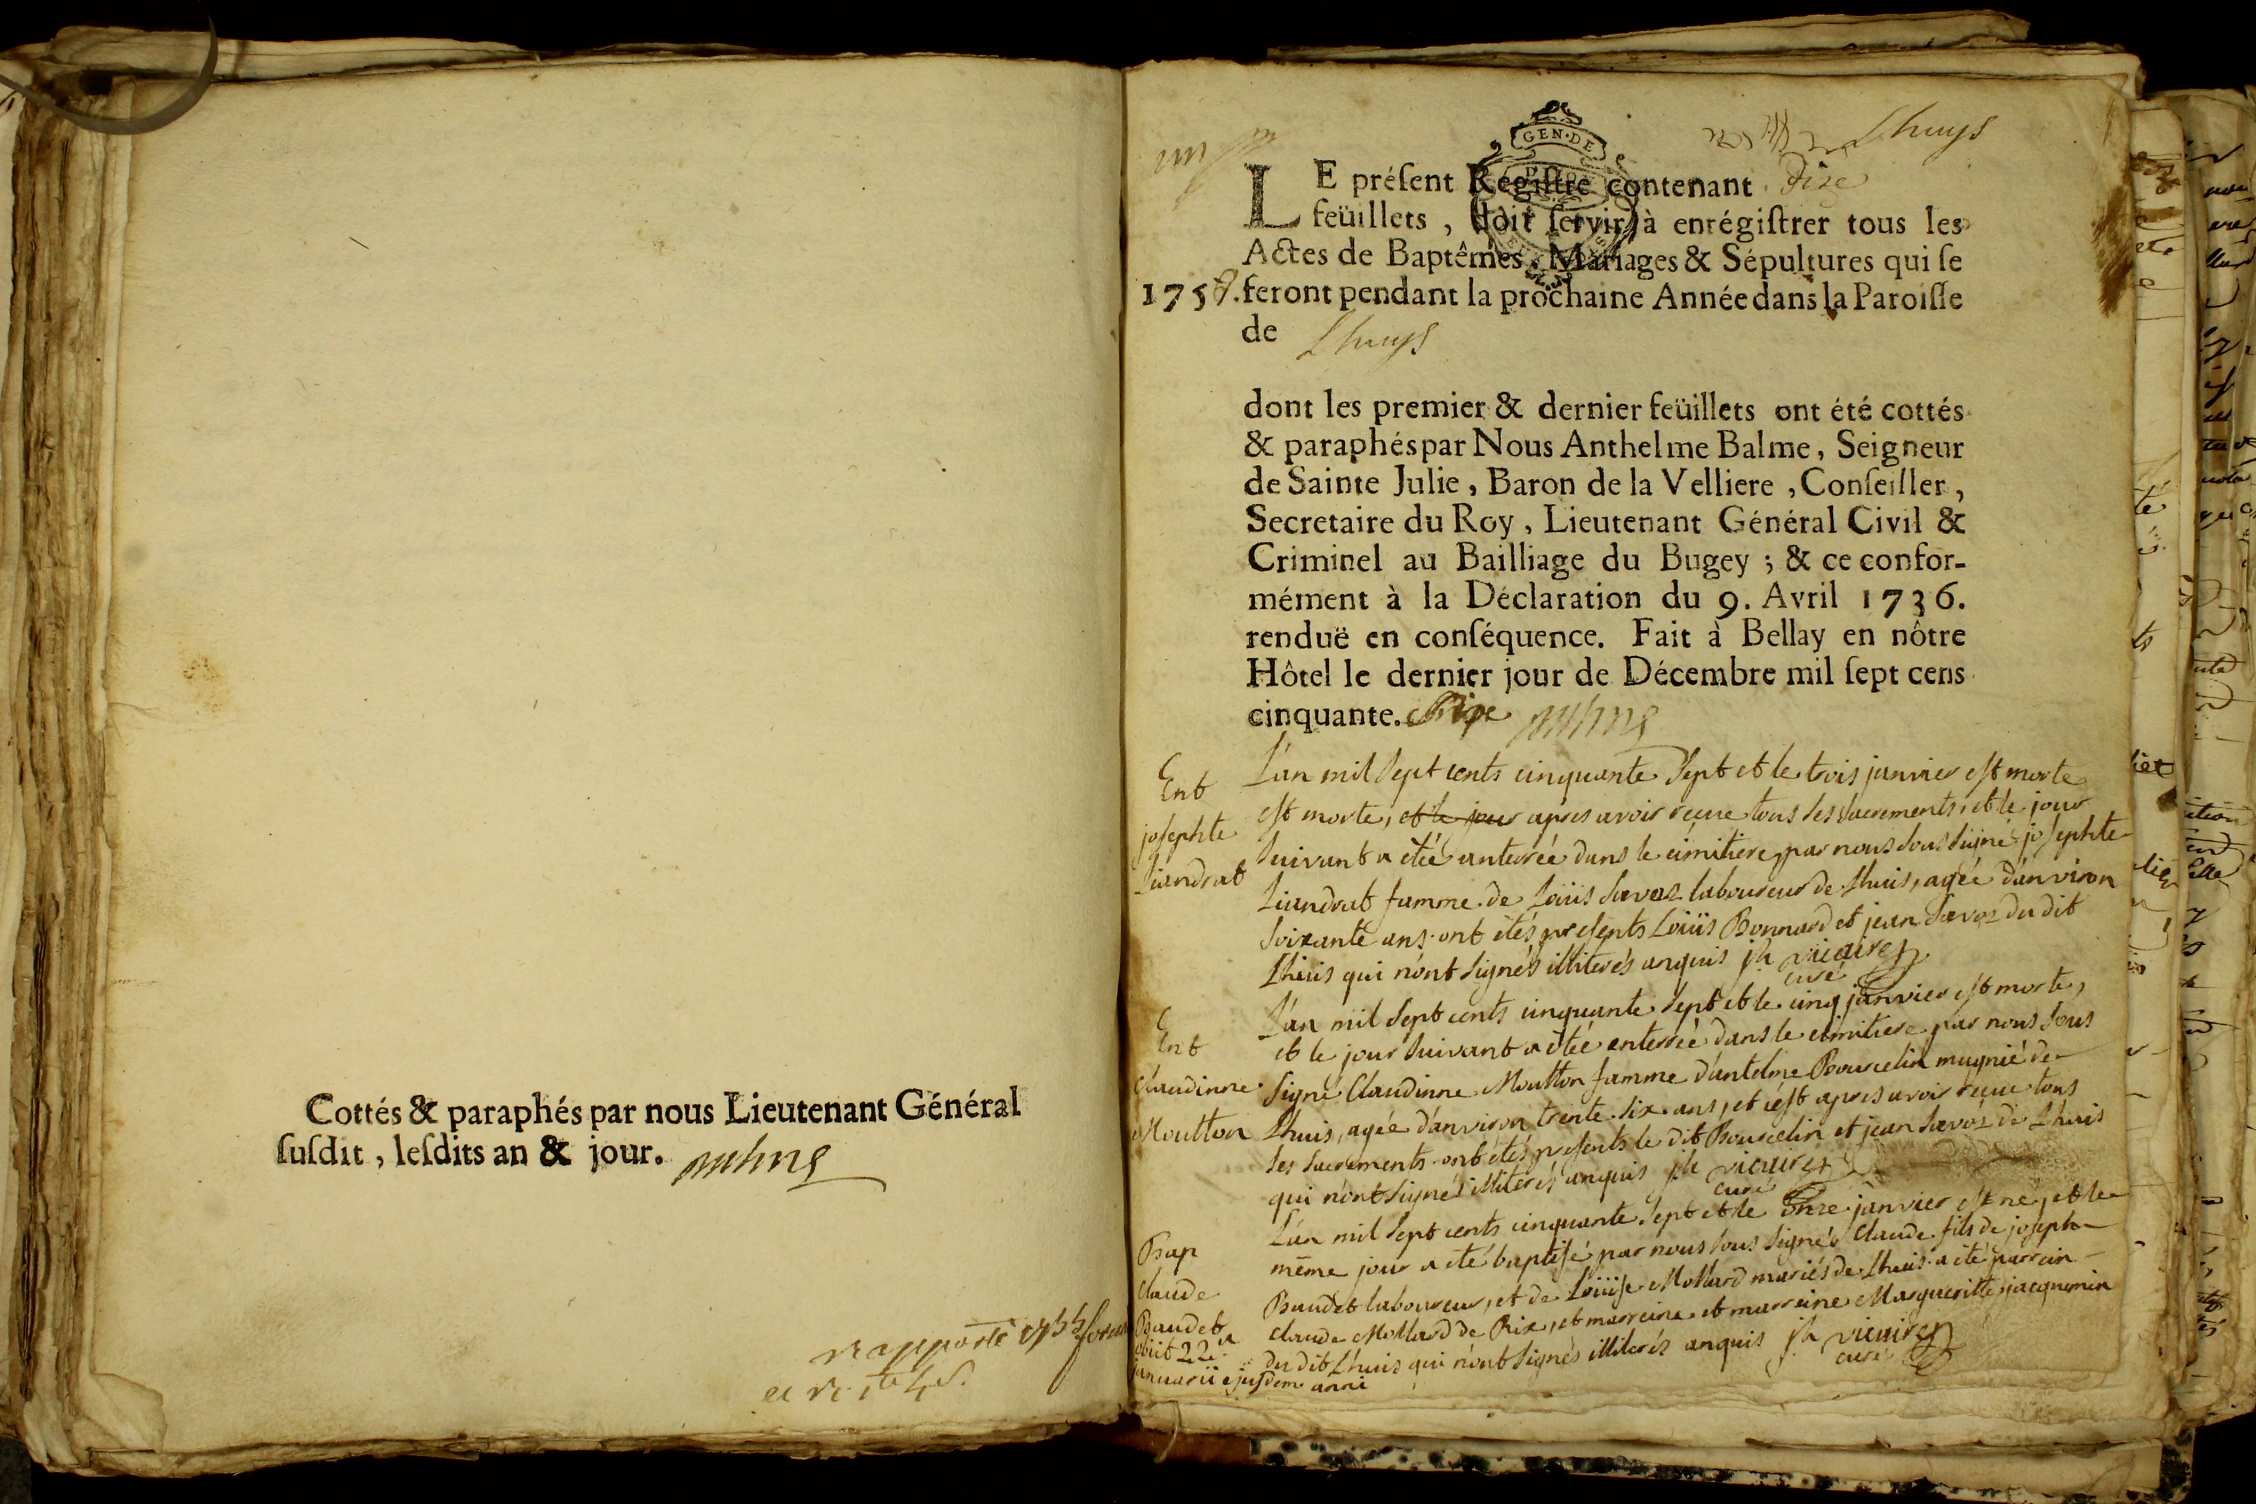 Cottés & paraphés par nous Lieutenant Général
ſuſdit, leſdits an & jour.
rapporté
Lhuys
GEN·DE
LE préſent Regiſtre contenant dixe
feüillets, doit ſervir à enrégiſtrer tous les
Actes de Baptêmes, Mariages & Sépultures qui ſe
feront pendant la prochaine Année dans la Paroiſſe
de Lhuys
dont les premier & dernier feüillets ont été cottés
& paraphés par Nous Anthelme Balme, Seigneur
de Sainte Julie, Baron de la Velliere, Conſeiller,
Secretaire du Roy, Lieutenant Général Civil &
Criminel au Bailliage du Bugey; & ce confor-
mément à la Déclaration du 9. Avril 1736.
renduë en conſéquence. Fait à Bellay en nôtre
Hôtel le dernier jour de Décembre mil ſept cens
cinquante.
Ent
joſephte
Liandrat
L'an mil Sept cents cinquante Sept et le trois janvier eſt morte
eſt morte, et le jour apres avoir recue tous les Sacrements, et le jour
Suivant a étéé anterrée dans le cimitiere par nous Sous Signé joſephte
Liandrat famme de Loüis Savoz laboureur de Lhuis, agéé d'anviron
Soixante ans. ont étés preſents Loüis Bonnard et jean Savoz du dit
Lhuis qui n'ont Signés illiterés anquis vicaire
curé
Ent
Claudinne
Moutton
L'an mil Sept cents cinquante Sept et le cinq janvier eſt morte,
et le jour Suivant a étéé enterréé dans le cimitiere par nous Sous
Signé Claudinne Moutton famme d'antelme Bourcelin mugnié de
Lhuis, agéé d'anviron trente. Six ans, et c'eſt apres avoir recue tous
les Sacrements. ont étés preſents le dit Bourcelin et jean Savoz de Lhuis
qui n'ont Signés illiterés anquis vicaire
curé
Bap
Claude
Baudet
obiit 22a
januarii ejuſdem anni
L'an mil Sept cents cinquante Sept et le onze janvier eſt né, et le
même jour a été baptiſé par nous Sous Signés Claude fils de joſeph
Baudet laboureur, et de Loüiſe Mollard mariés de Lhuis. a été parrein
claude Mollard de Rix, et marreine et marreine Margueritte jacquemin
du dit Lhuis qui n'ont Signés illiterés anquis vicaire
curé